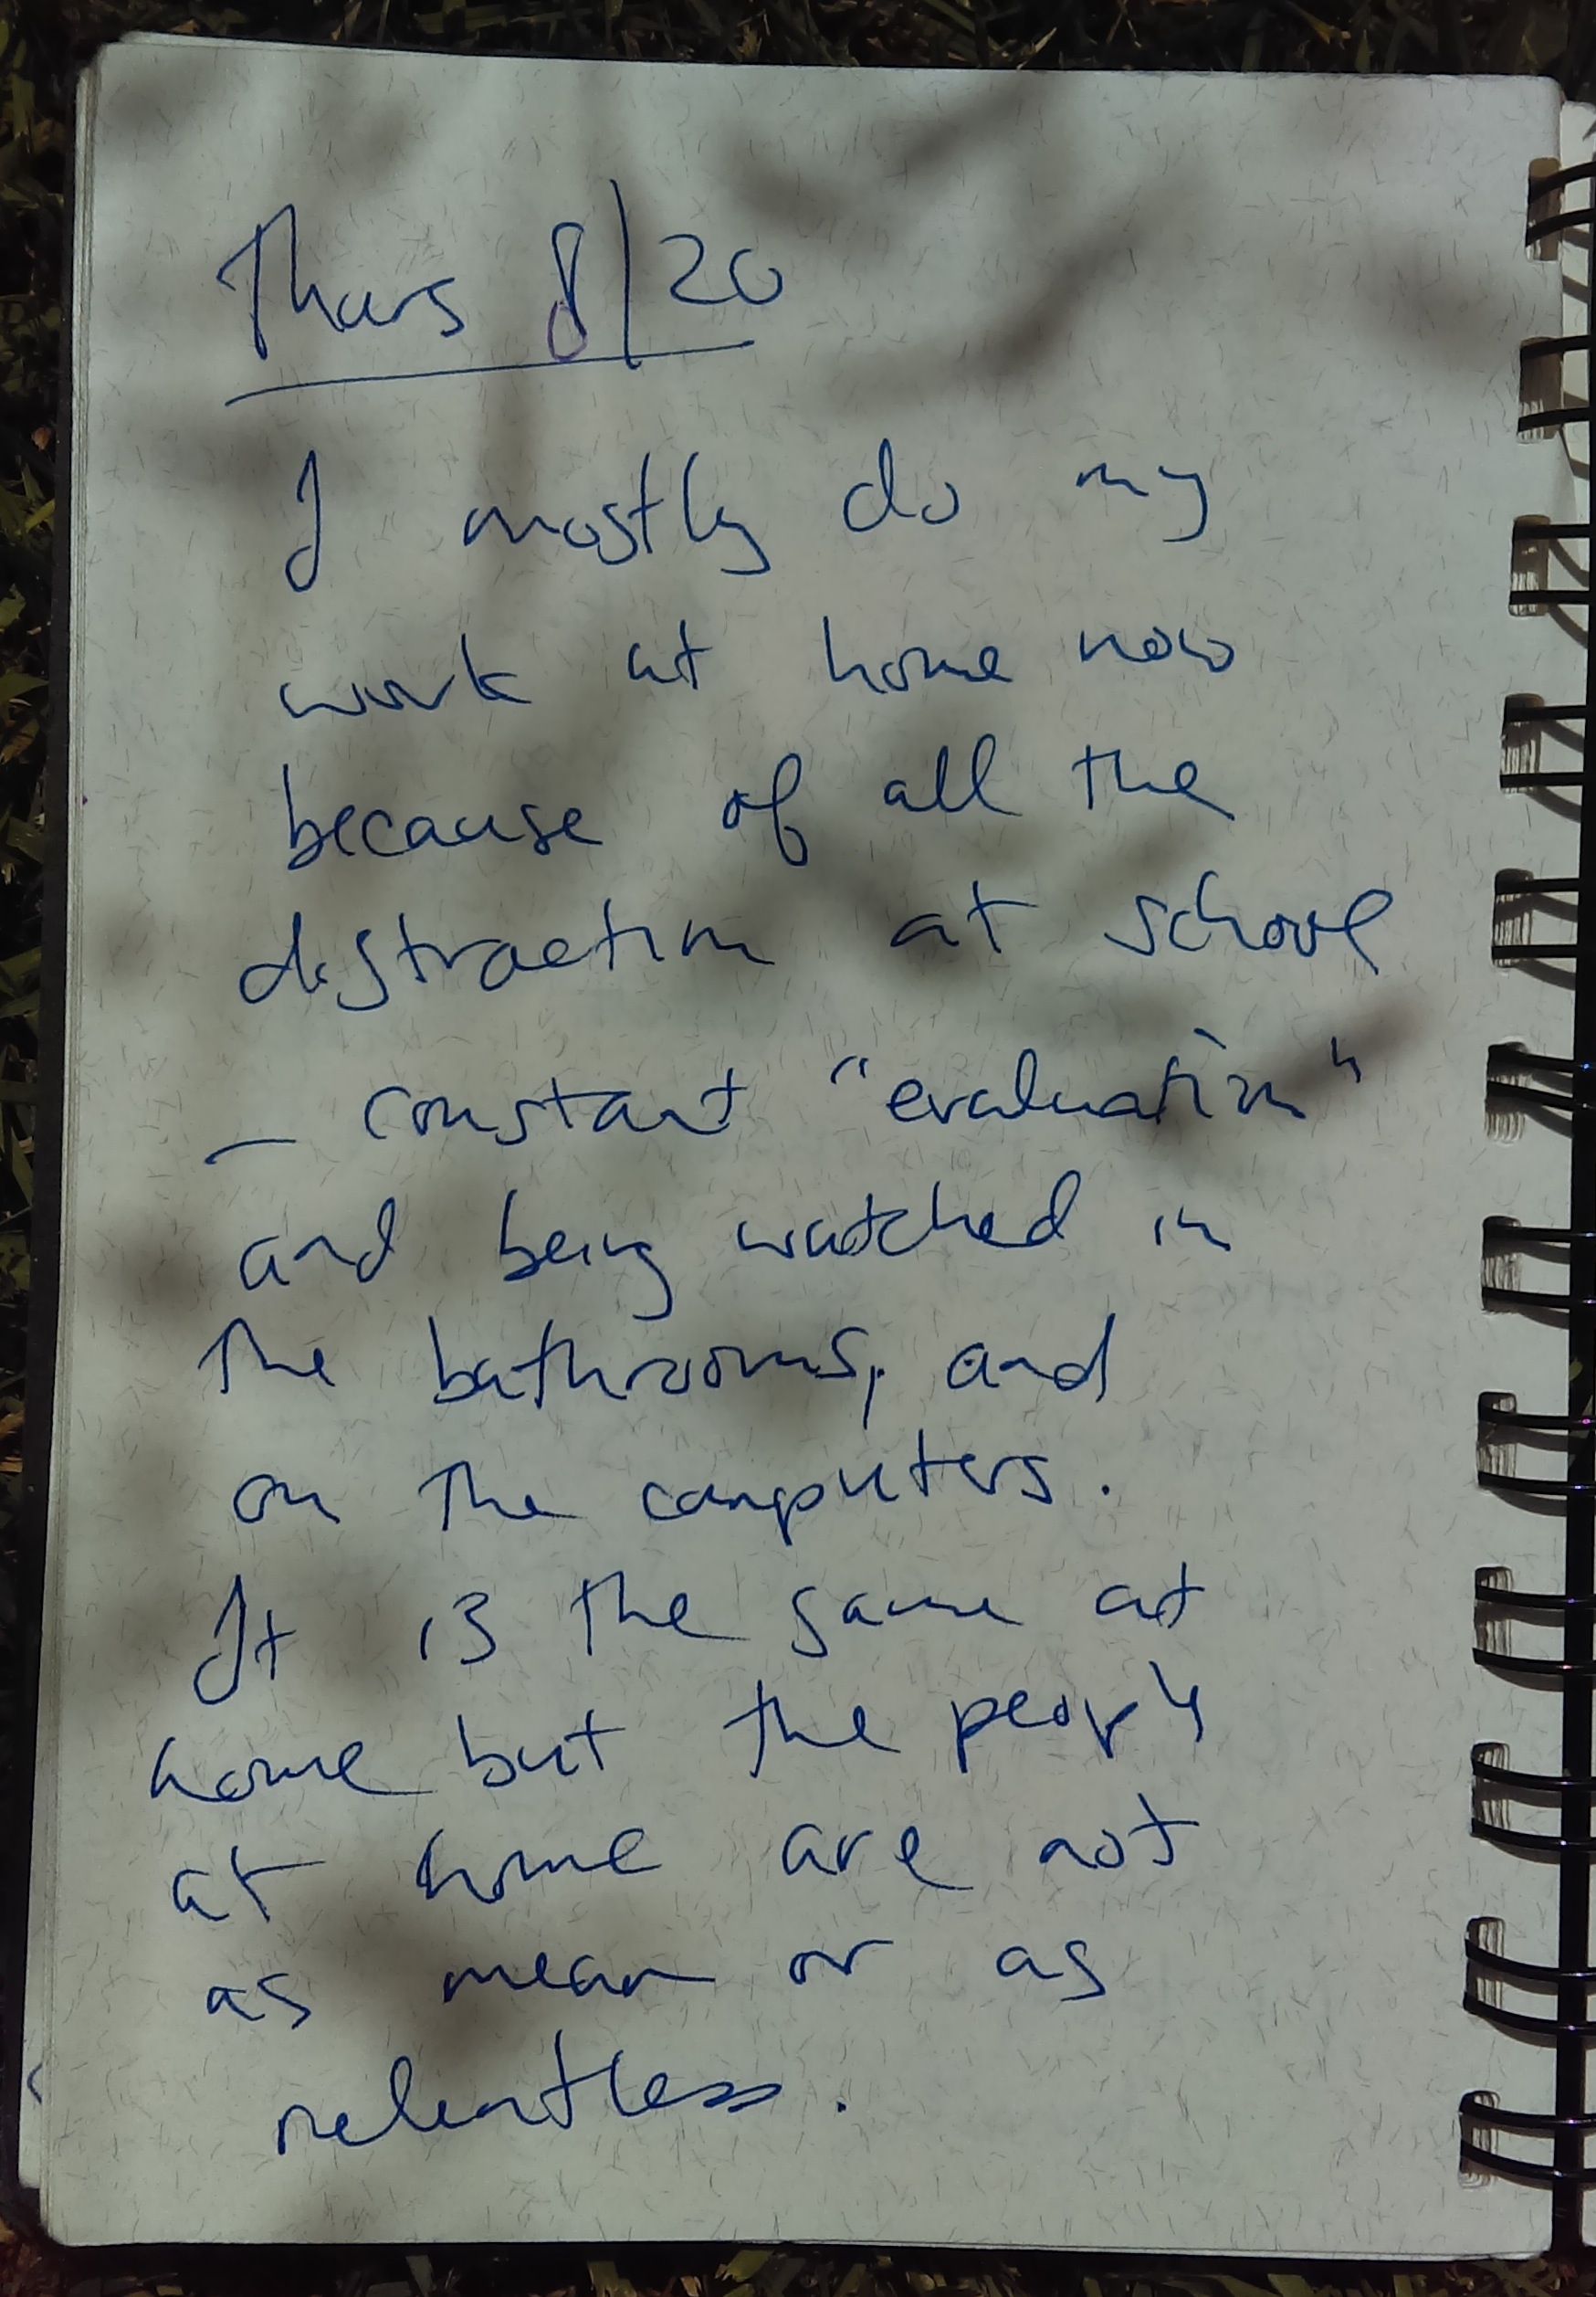 Thurs 8/20
I mostly do my
work at home now
because of all the
distraction at school
- constant "evaluation"
and being watched in
the bathrooms, and
on the computers.
It is the same at
home but the people
at home are not
as mean or as
relentless.